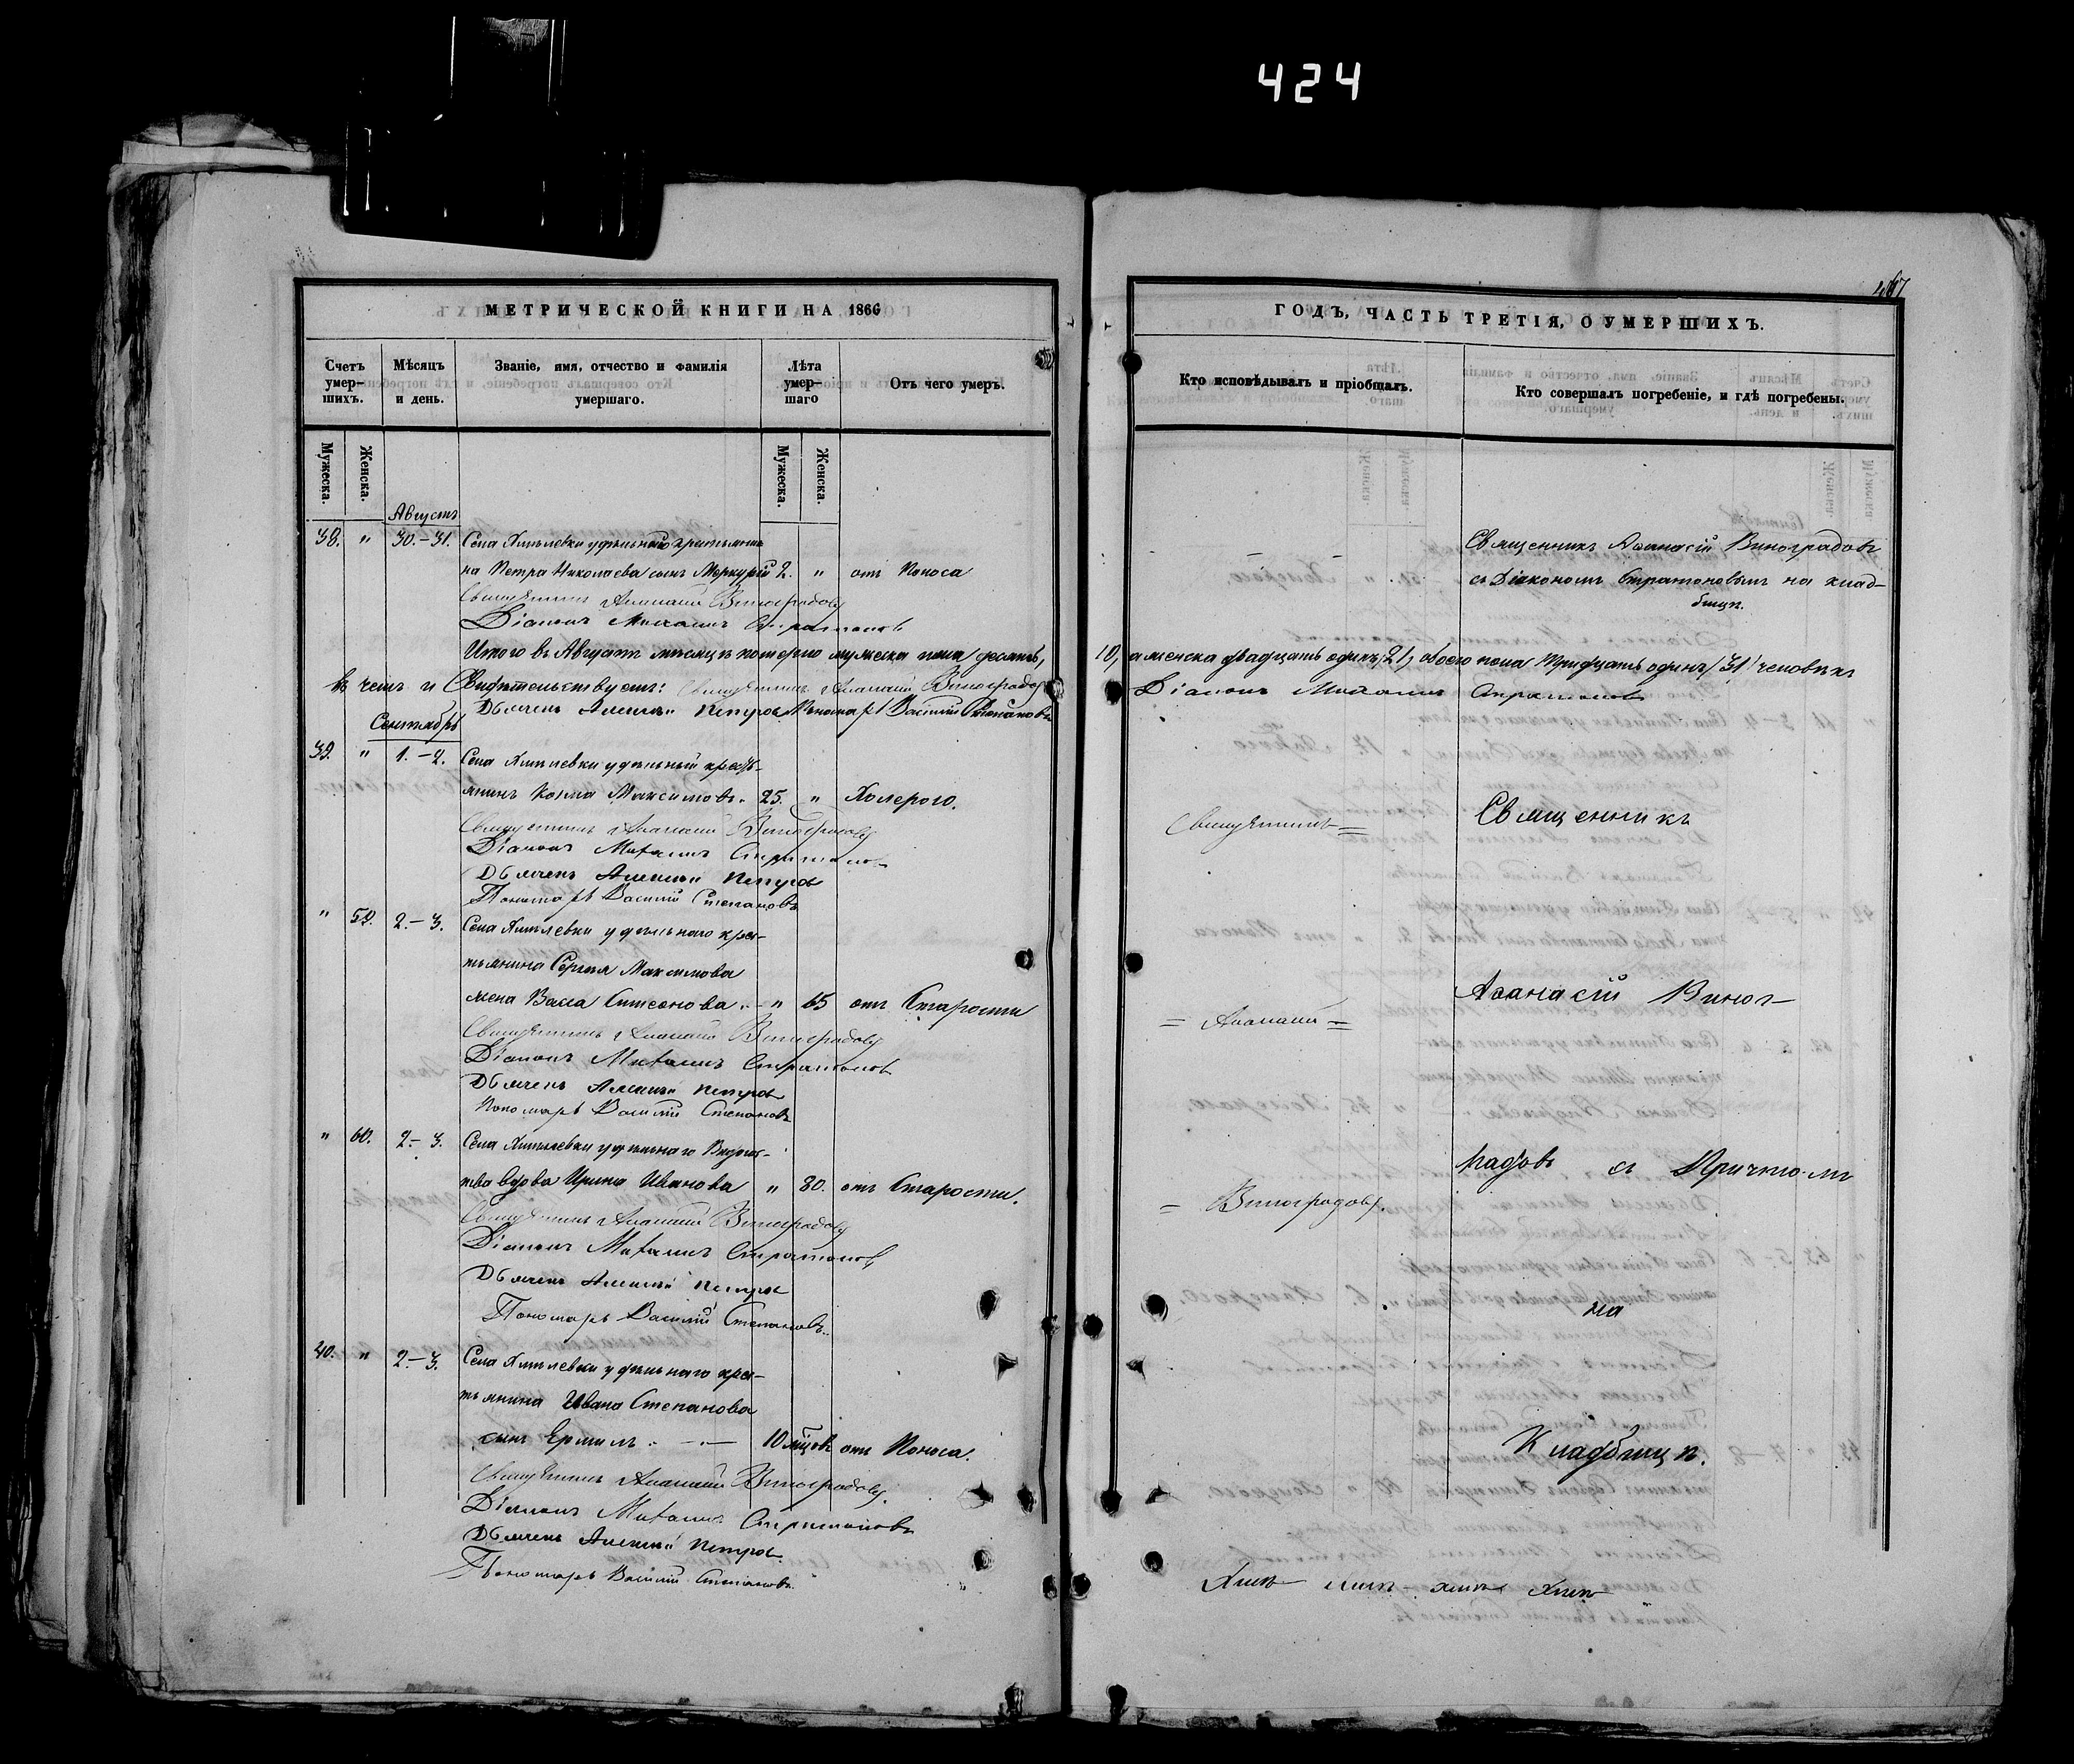 424
467
МЕТРИЧЕСКОЙ КНИГИ НА 1866
Счетъ умер-шихъ.
Мѣсяцъ и день.
Званіе, имя, отчество и фамилія умершаго.
Лѣта умер-шаго
Отъ чего умеръ.
Мужеска.
Женска.
Мужеска.
Женска.
Августъ
38. " 30.-31. Села Хмѣлевки удѣльнаго крестьяни-
на Петра Николаева сынъ Меркурій 2. " отъ Поноса
Священникъ Аѳанасій Виноградовъ
Діаконъ Михаилъ Стратоновъ
Итого въ Августѣ мѣсяцѣ померло мужеска пола десять,
въ чемъ и Свидѣтельствуемъ: Священникъ Аѳанасій Виноградовъ
Дьячекъ Алексѣй Петровъ Пономарь Василій Степановъ
Сентябрь
39. " 1.-2. Села Хмѣлевки удѣльный кресть-
янинъ Козма Максимовъ. 25. " Холерою.
Священникъ Аѳанасій Виноградовъ
Діаконъ Михаилъ Стратоновъ
Дьячекъ Алексѣй Петровъ
Пономарь Василій Степановъ
" 59. 2.-3. Села Хмѣлевки удѣльнаго крес-
тьянина Сергія Максимова
жена Васса Симеонова. " 65 отъ Старости
Священникъ Аѳанасій Виноградовъ
Діаконъ Михаилъ Стратоновъ
Дьячекъ Алексѣй Петровъ
Пономарь Василій Степановъ
" 60. 2.-3. Села Хмѣлевки удѣльнаго Вѣдомс-
тва вдова Ирина Иванова " 80. отъ Старости.
Священникъ Аѳанасій Виноградовъ
Діаконъ Михаилъ Стратоновъ
Дьячекъ Алексѣй Петровъ
Пономарь Василій Степановъ.
40. " 2.-3. Села Хмѣлевки удѣльнаго крес-
тьянина Ивана Степанова
сынъ Ермилъ. 10 мѣцовъ отъ Поноса.
Священникъ Аѳанасій Виноградовъ.
Діаконъ Михаилъ Стратоновъ
Дьячекъ Алексѣй Петровъ
Пономарь Василій Степановъ.
ГОДЪ, ЧАСТЬ ТРЕТІЯ, О УМЕРШИХЪ.
Кто исповѣдывалъ и пріобщалъ.
Кто совершалъ погребеніе, и гдѣ погребены.
Священникъ Аѳанасій Виноградовъ
съ Діакономъ Стратоновымъ на клад-
бищѣ.
10, а женска двадцать одинъ, 21, обоего пола тридцать одинъ, 31, человѣкъ
Діаконъ Михаилъ Стратоновъ
Священникъ = Священникъ
= Аѳанасій = Аѳанасій Виног-
= Виноградовъ. радовъ съ Причто-мъ
на
Кладбищѣ.